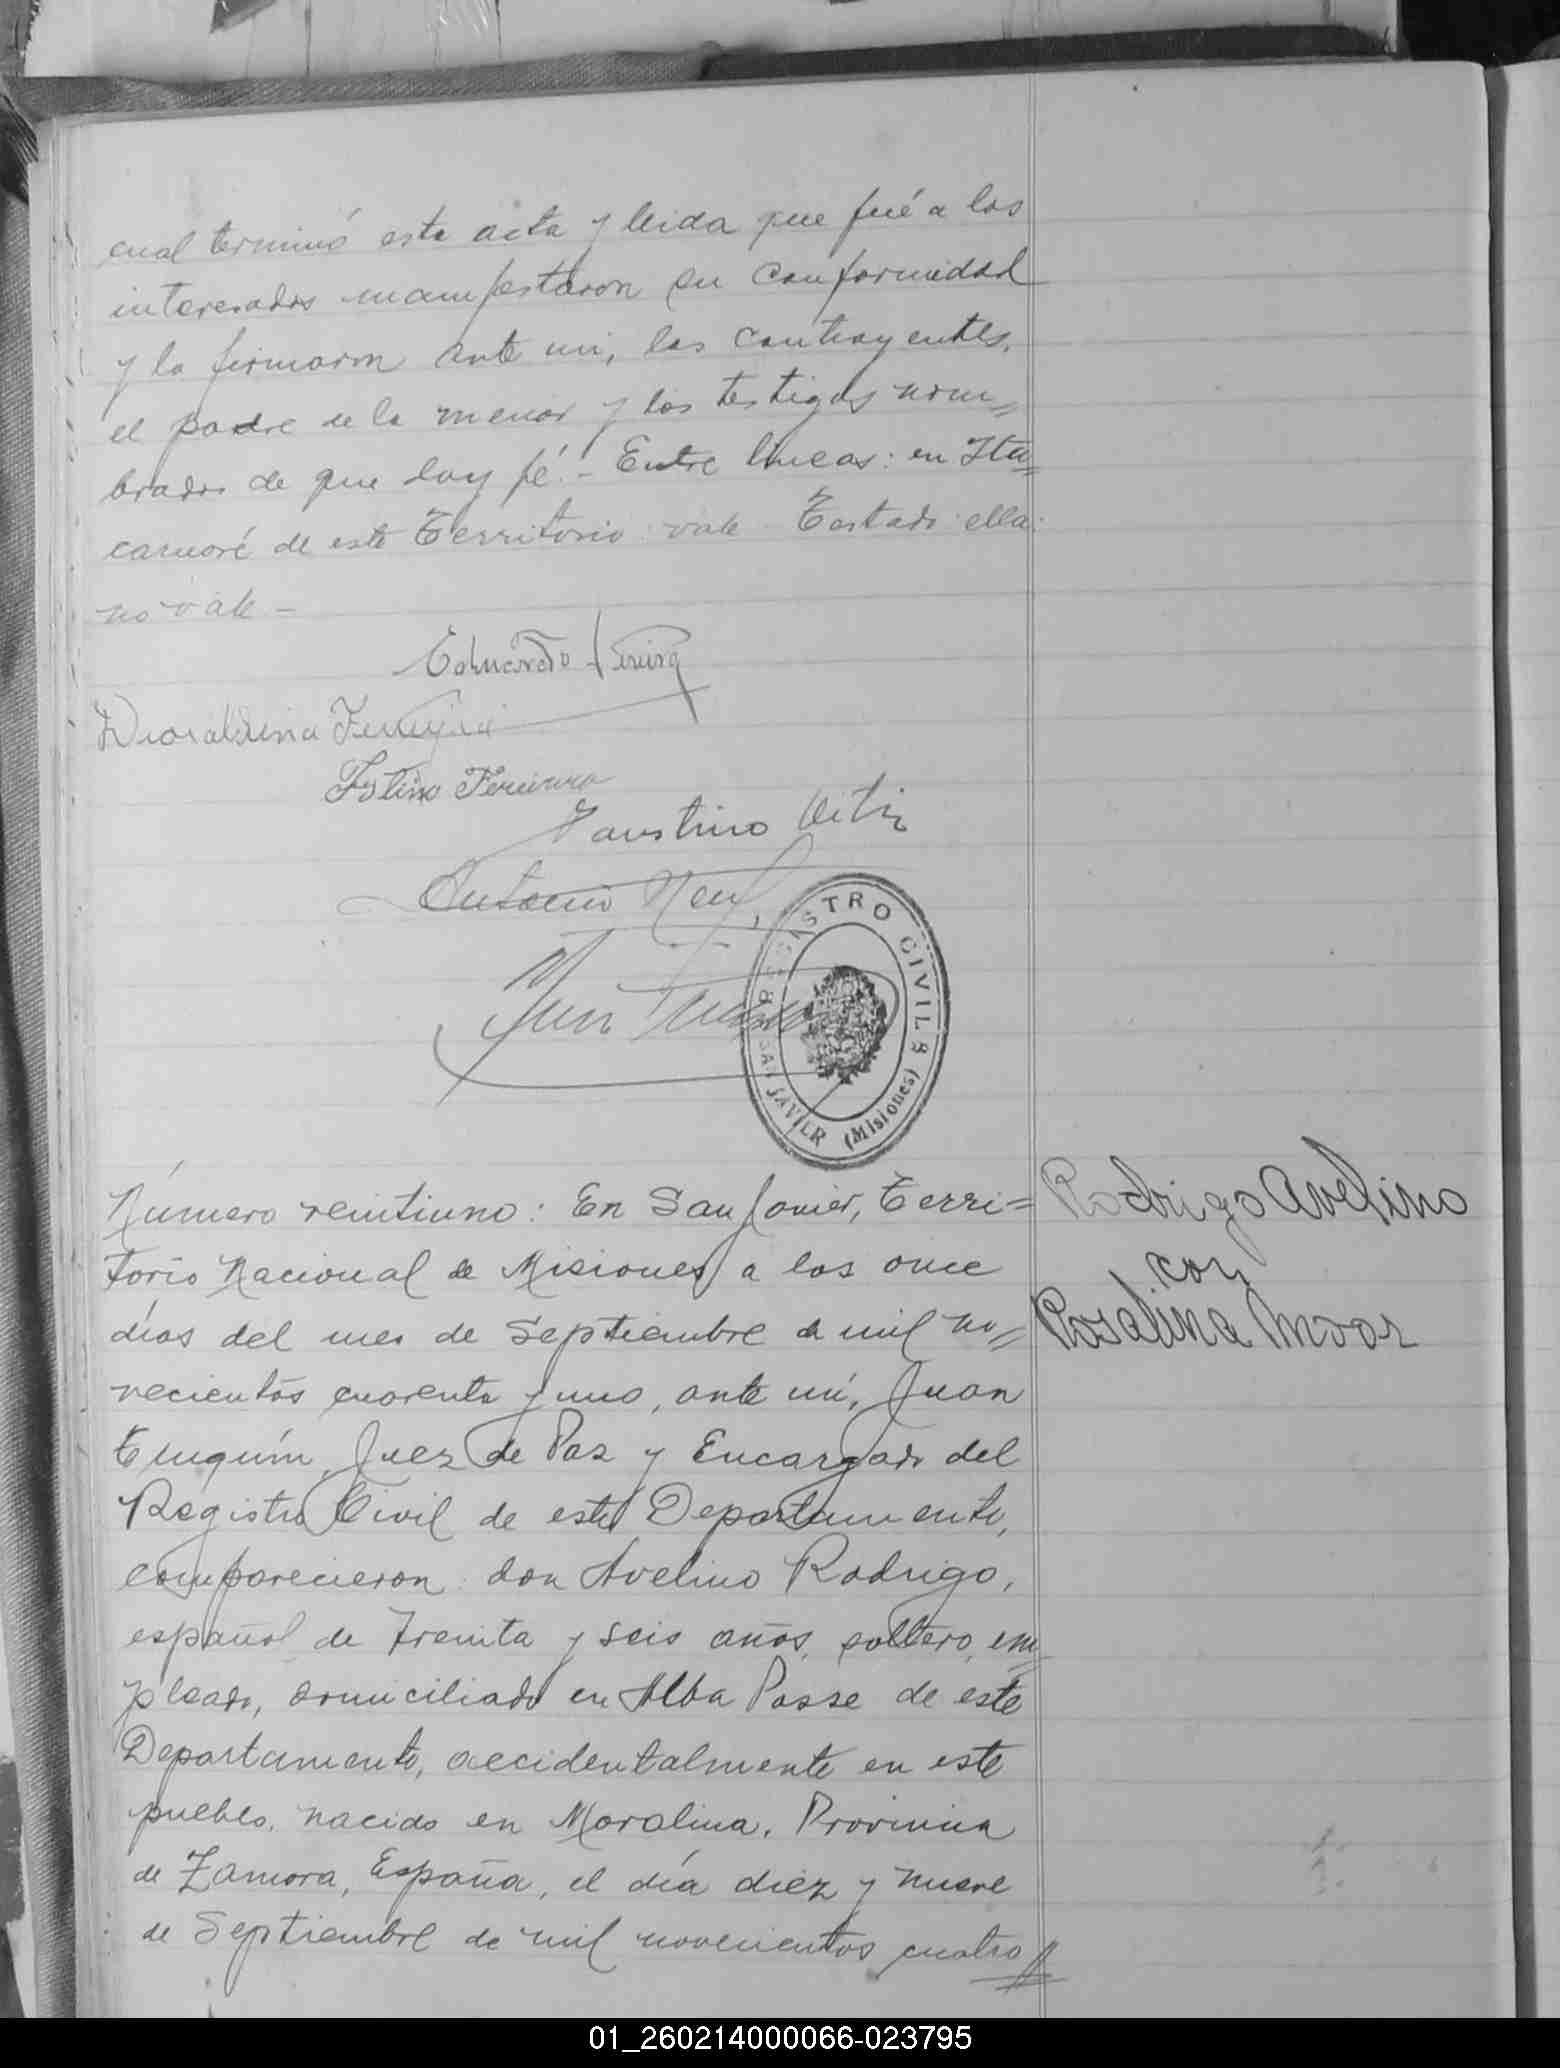 cual terminó esta acta y leida que fué a los
interesados manifestaron su conformidad
y la firmaron ante mi, los contrayentes,
el padre de la menor y los testigos nom=
brados de que doy fé.- Entre líneas: en Ita=
caruaré de este Territorio: vale Testado: ella:
no vale -
Eduardo
Ferreyra
Faustino
Antonio
Juan
REGISTRO CIVIL
SAN JAVIER (Misiones)
Número veintiuno: En San Javier, Terri=
torio Nacional de Misiones a los once
días del mes de Septiembre de mil no=
vecientos cuarenta y uno, ante mí, Juan
Juez de Paz y Encargado del
Registro Civil de este Departamento,
comparecieron: don Avelino Rodrigo,
español de treinta y seis años, soltero, em=
pleado, domiciliado en Alba Posse de este
Departamento, accidentalmente en este
pueblo, nacido en Moralina, Provincia
de Zamora, España, el día diez y nueve
de Septiembre de mil novecientos cuatro
Rodrigo Avelino
con
Rosalina Moor
01_260214000066-023795